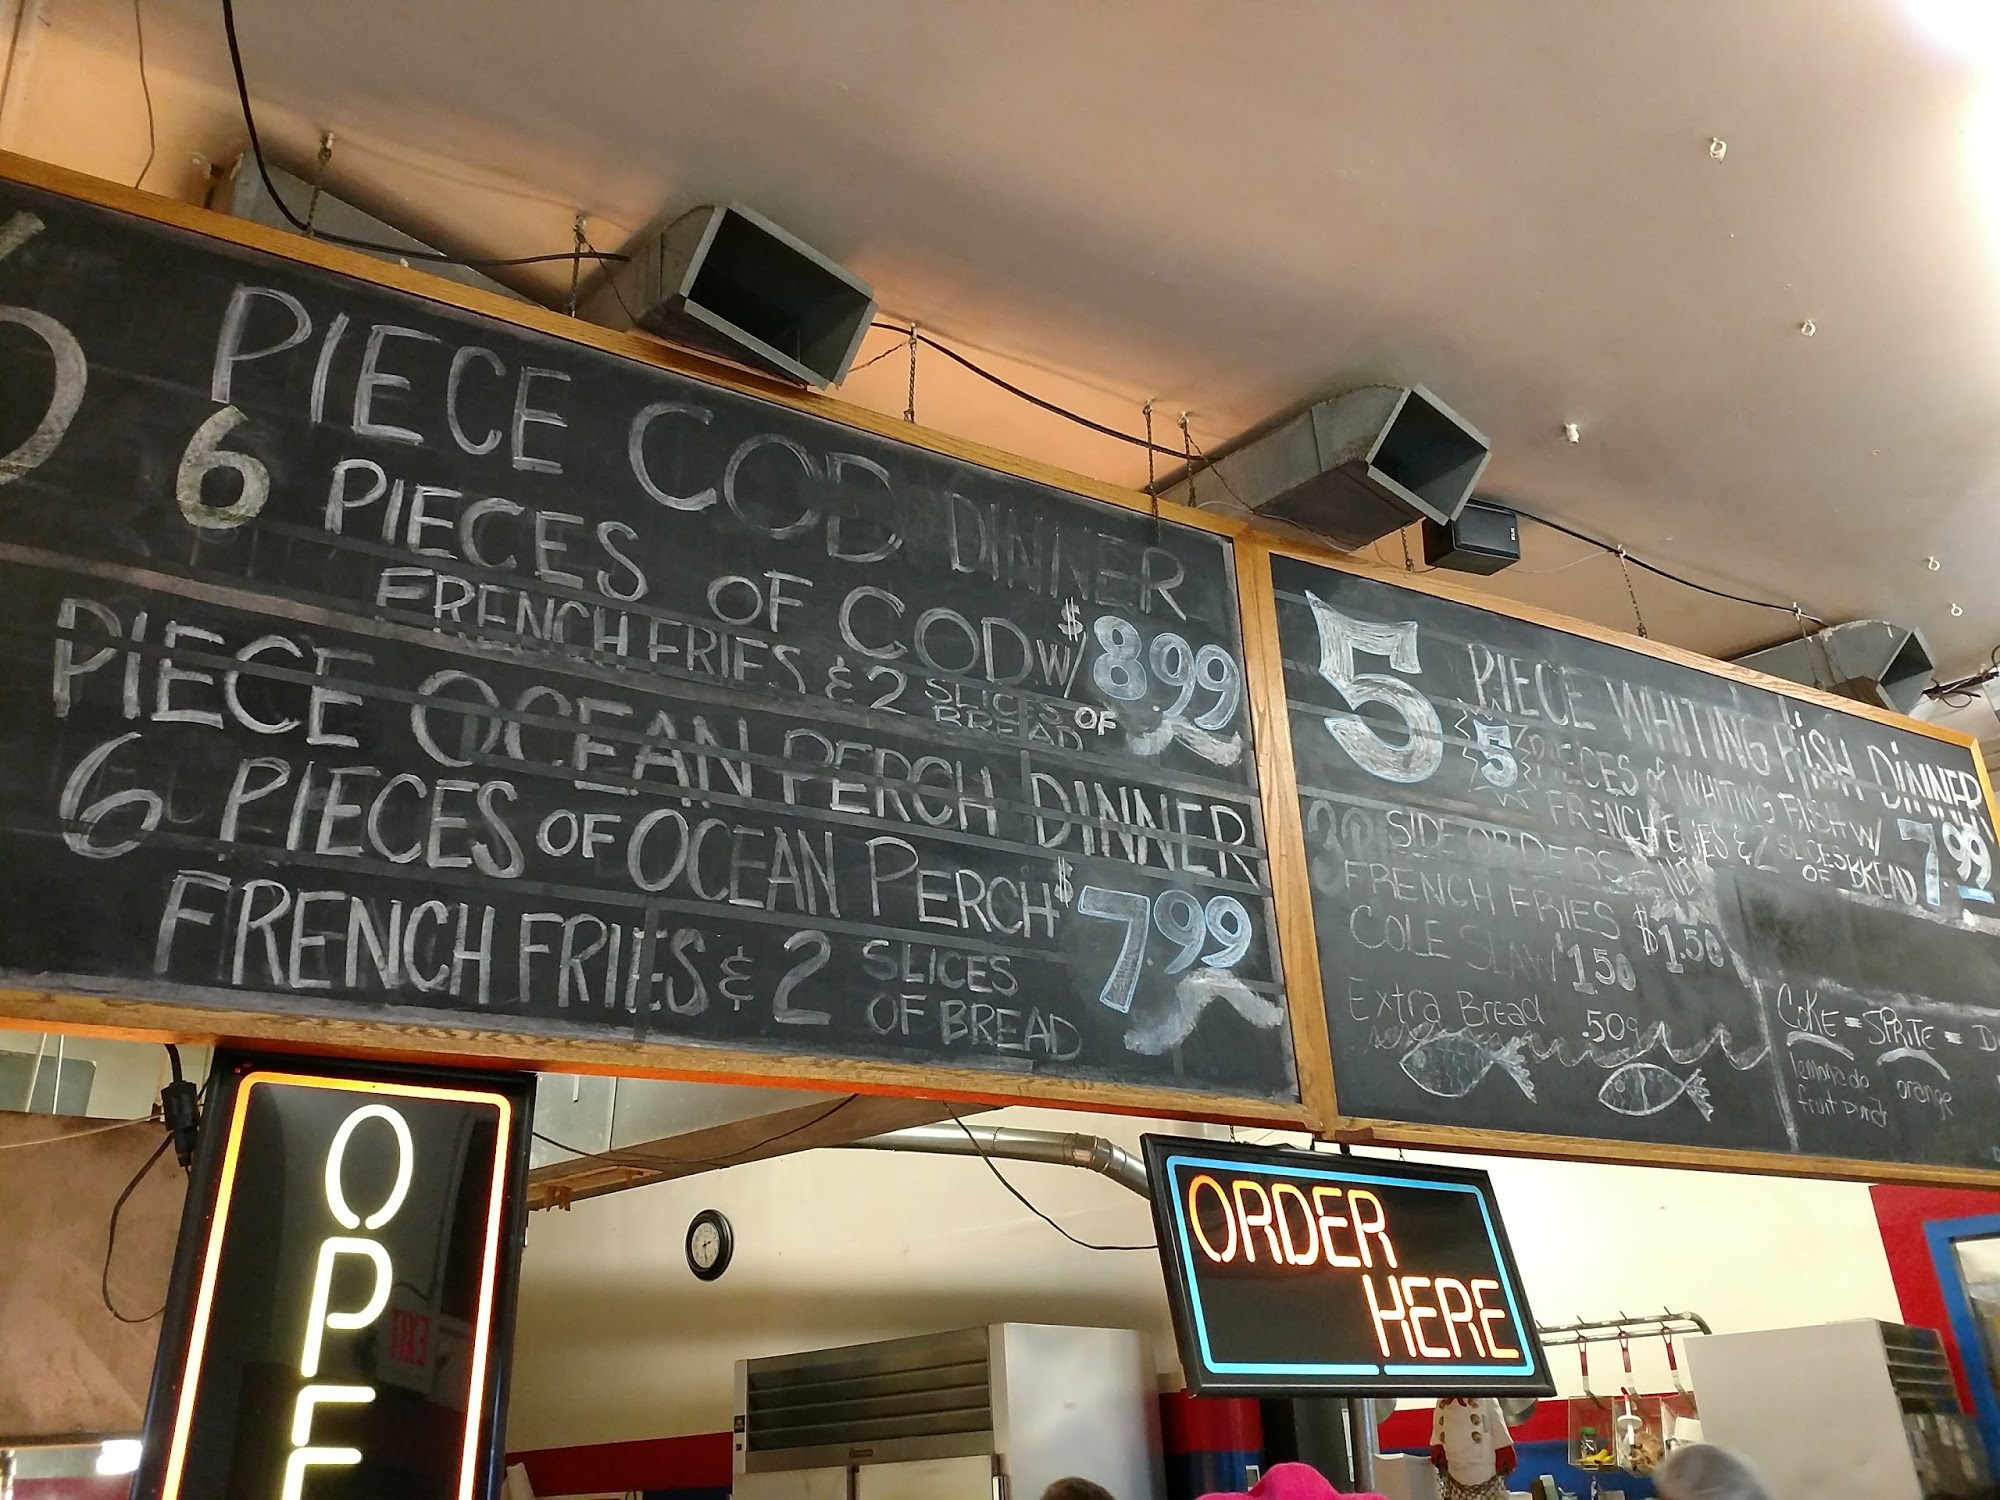 6 PIECE COD DINNER
6 PIECES OF COD W/ $8.99
FRENCH FRIES & 2 SLICES OF
BREAD
PIECE OCEAN PERCH DINNER
6 PIECES OF OCEAN PERCH $7.99
FRENCH FRIES & 2 SLICES
OF BREAD
5 PIECE WHITING FISH DINNER
5 PIECES of WHITING FISH W/
FRENCH FRIES & 2 SLICES OF BREAD 7.99
SIDE ORDERS
FRENCH FRIES $1.50
COLE SLAW $1.50
Extra Bread .50¢
COKE = SPRITE = D
lemonade orange
fruit punch
OPE
EXIT
ORDER
HERE